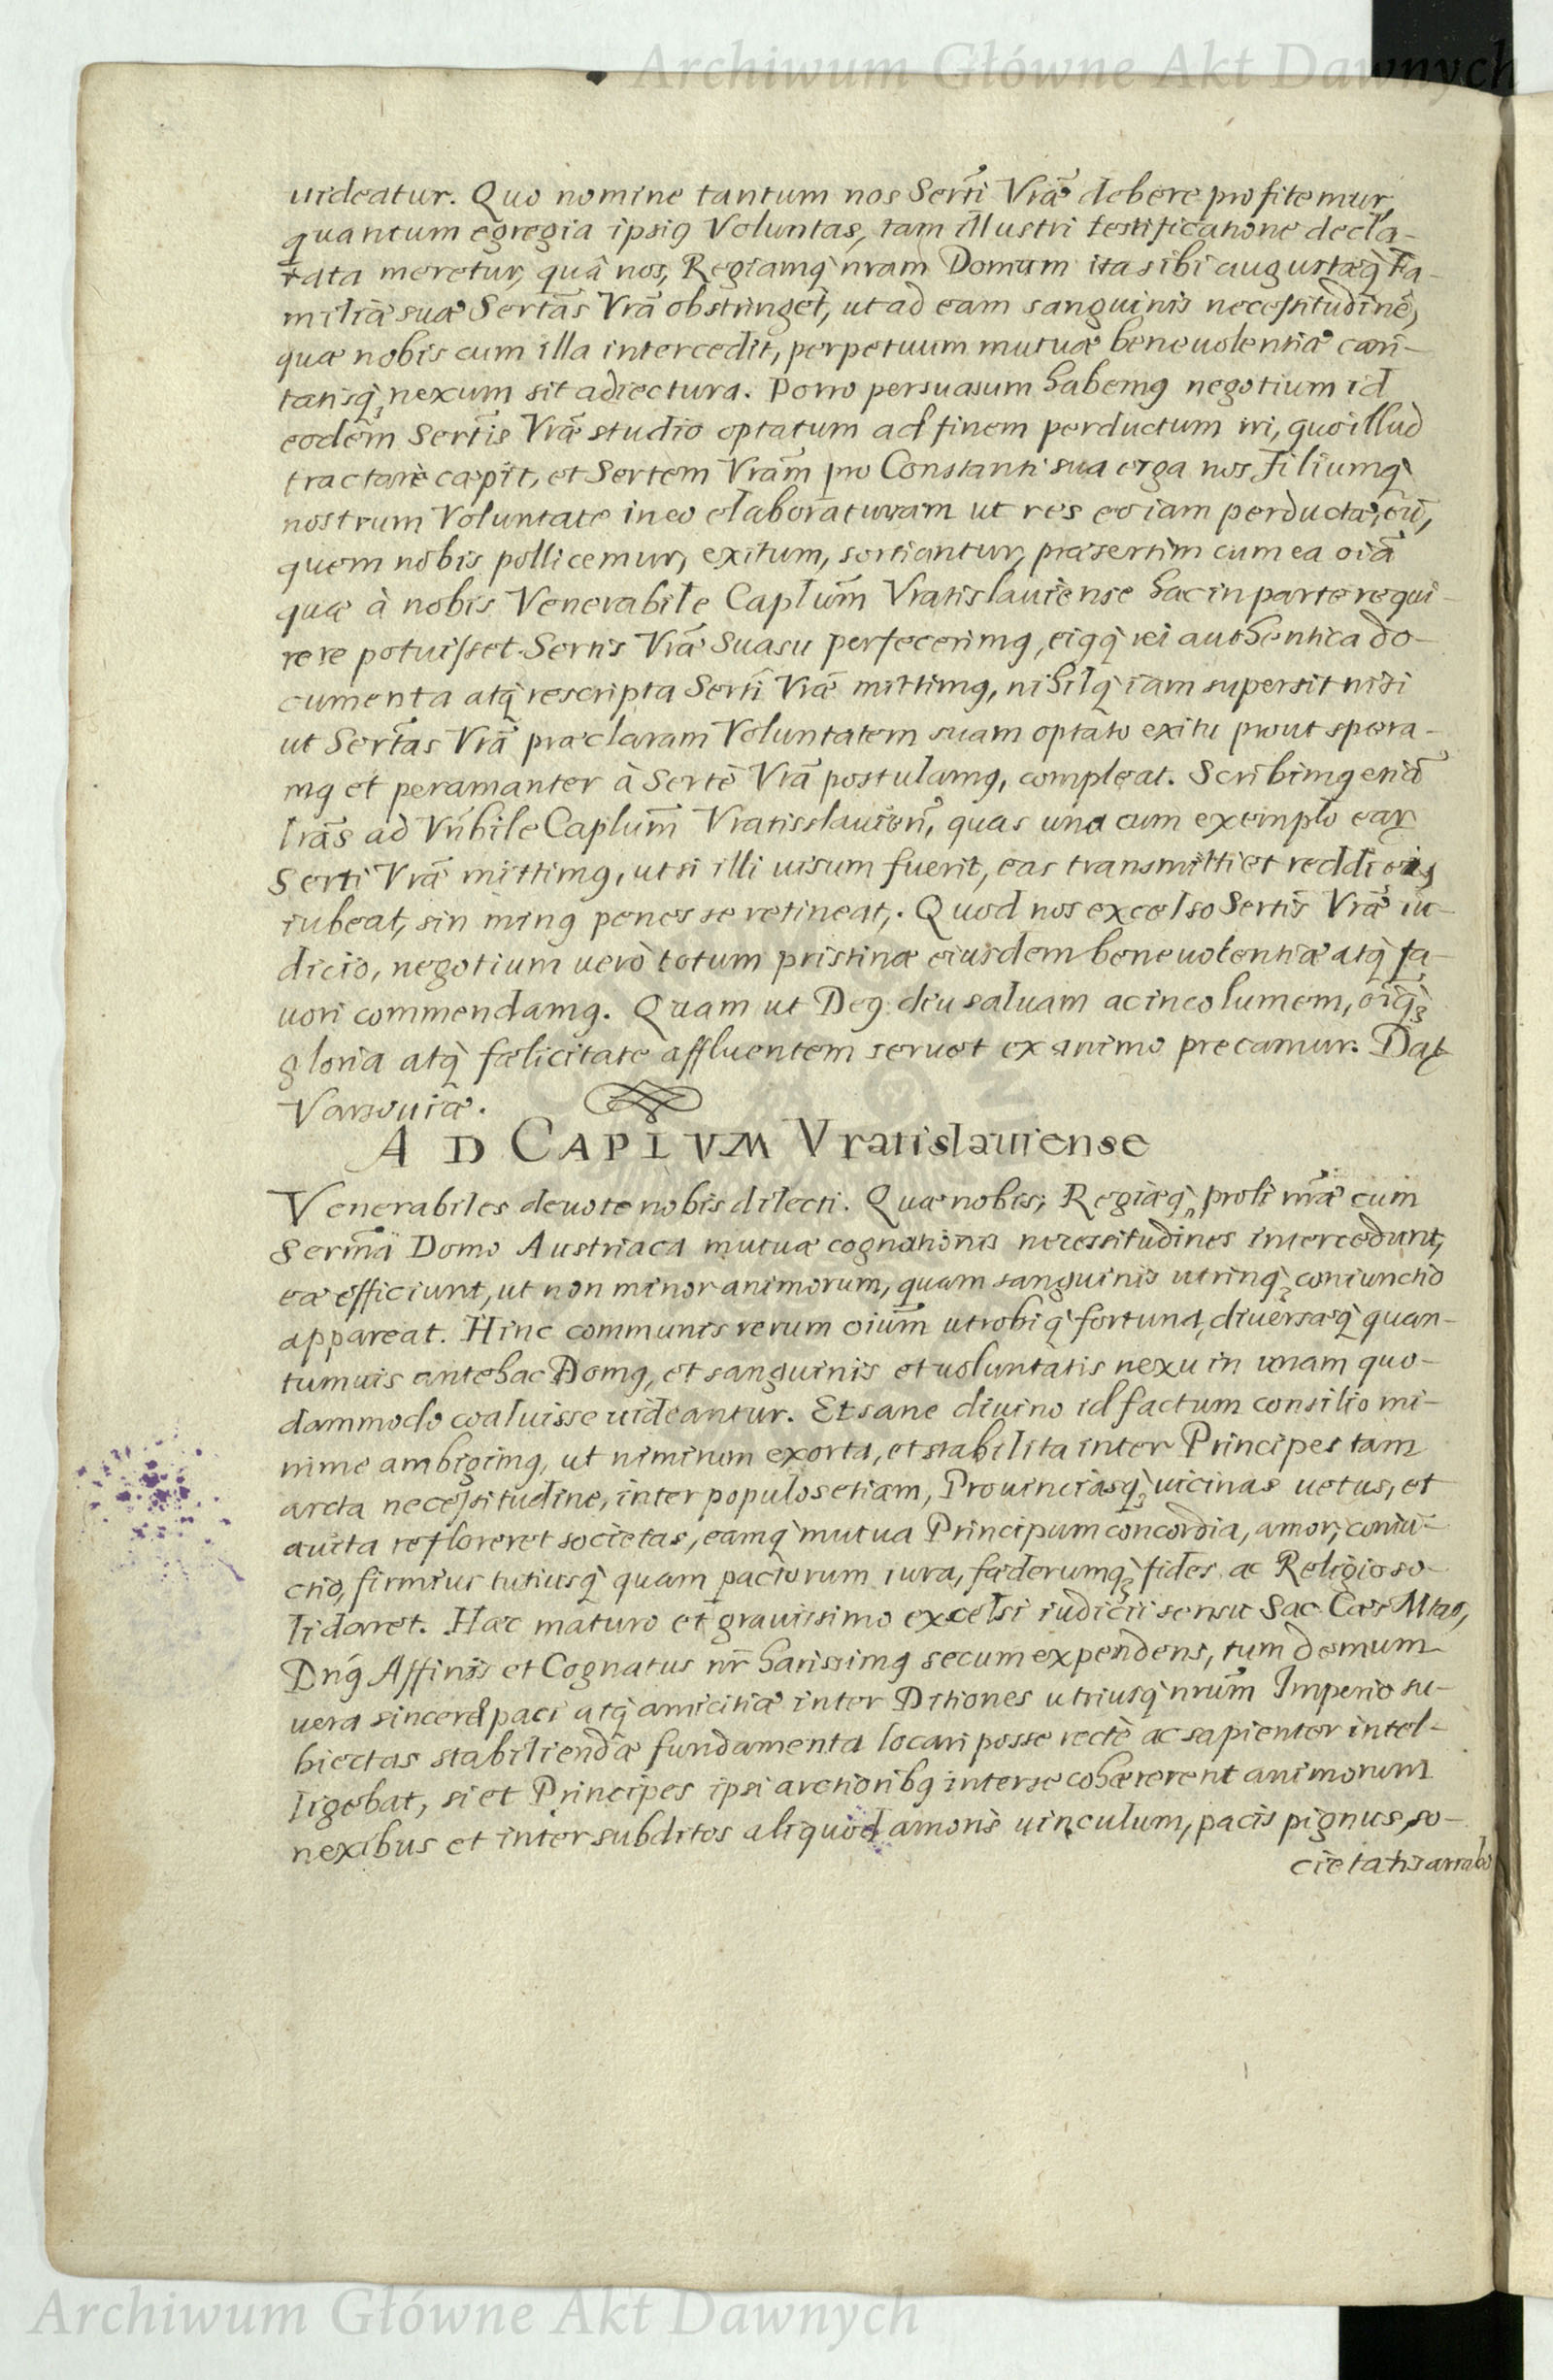 Archiwum Główne Akt Dawnych
uideatur. Quo nomine tantum nos Serti Vrae debere profitemur,
quantum egregia ipsiꝰ Voluntas, tam illustri testificatione decla-
rata meretur, quâ nos, Regiamq́ nram Domum ita sibi augustaeq́ Fa-
miliæ suæ Sertas Vra obstringet, ut ad eam sanguinis necessitudinē,
quæ nobis cum illa intercedit, perpetuum mutuæ beneuolentiæ cari-
tatisq́ nexum sit adiectura. Porro persuasum habemꝰ negotium id
eodem Sertis Vræ studio optatum ad finem perductum iri, quo illud
tractare cæpit, et Sertem Vram pro Constanti sua erga nos Filiumq́
nostrum Voluntate in eo elaboraturam ut res eo iam perducta, eū,
quem nobis pollicemur, exitum, sortiantur, præsertim cum ea oīa
quæ à nobis Venerabile Caplum̄ Vratislauiense hac in parte requi-
rere potuisset Sertis Vræ suasu perfecerimꝰ, eiꝰq́ rei authentica do-
cumenta atq́ rescripta Serti Vræ mittimꝰ, nihilq́ iam supersit nisi
ut Sertas Vra præclaram Voluntatem suam optato exitu prout spera-
mꝰ et peramanter à Sertē Vra postulamꝰ, compleat. Scribimꝰ etiā
lrās ad Vn̄bile Caplum̄ Vratisslauien̄, quas una cum exemplo eaꝝ
Serti Vræ mittimꝰ, ut si illi uisum fuerit, eas transmitti et reddi eis
iubeat, sin minꝰ penes se retineat,. Quod nos excelso Sertis Vræ iu-
dicio, negotium uerò totum pristinæ eiusdem beneuolentiæ atq́ fa-
uori commendamꝰ. Quam ut Deꝰ diu saluam ac incolumem, oīq́ꝫ
gloria atq́ fælicitate affluentem seruet ex animo precamur. Daꝷ
Varsouiæ.
AD CAPLVM Vratislauiense
Venerabiles deuote nobis dilecti. Quæ nobis, Regiæq́, proli nr̄æ cum
Serm̄a Domo Austriaca mutuæ cognationis necessitudines intercedunt,
eæ efficiunt, ut non minor animorum, quam sanguinis utrinq́ꝫ coniunctio
appareat. Hinc communis rerum oium̄ utrobiq́ fortuna, diuersæq́ quan-
tumuis antehac Domꝰ, et sanguinis et uoluntatis nexu in unam quo-
dammodo coaluisse uideantur. Et sane diuino id factum consilio mi-
nime ambigimꝰ, ut nimirum exorta, et stabilita inter Principes tam
arcta necessitudine, inter populos etiam, Prouinciasq́ꝫ uicinas uetus, et
auita refloreret societas, eamq́ mutua Principum concordia, amor, coniu-
ctio, firmius tutiusq́ quam pactorum iura, fæderumq́ꝫ fides ac Religio so-
lidaret. Hæc maturo et grauissimo excelsi iudicii sensu Sac Cæs Mtas,
Dnꝰ Affinis et Cognatus nr̄ harissimꝰ secum expendens, tum demum
uera sinceræ paci atq́ amicitiæ inter Ditiones utriusq́ nrum̄ Imperio su-
biectas stabiliendæ fundamenta locari posse rectè ac sapienter intel-
ligebat, si et Principes ipsi arctioribꝰ inter se cohærerent animorum
nexibus et inter subditos aliquod amoris uinculum, pacis pignus, so-
cietatis arrabo
Archiwum Główne Akt Dawnych